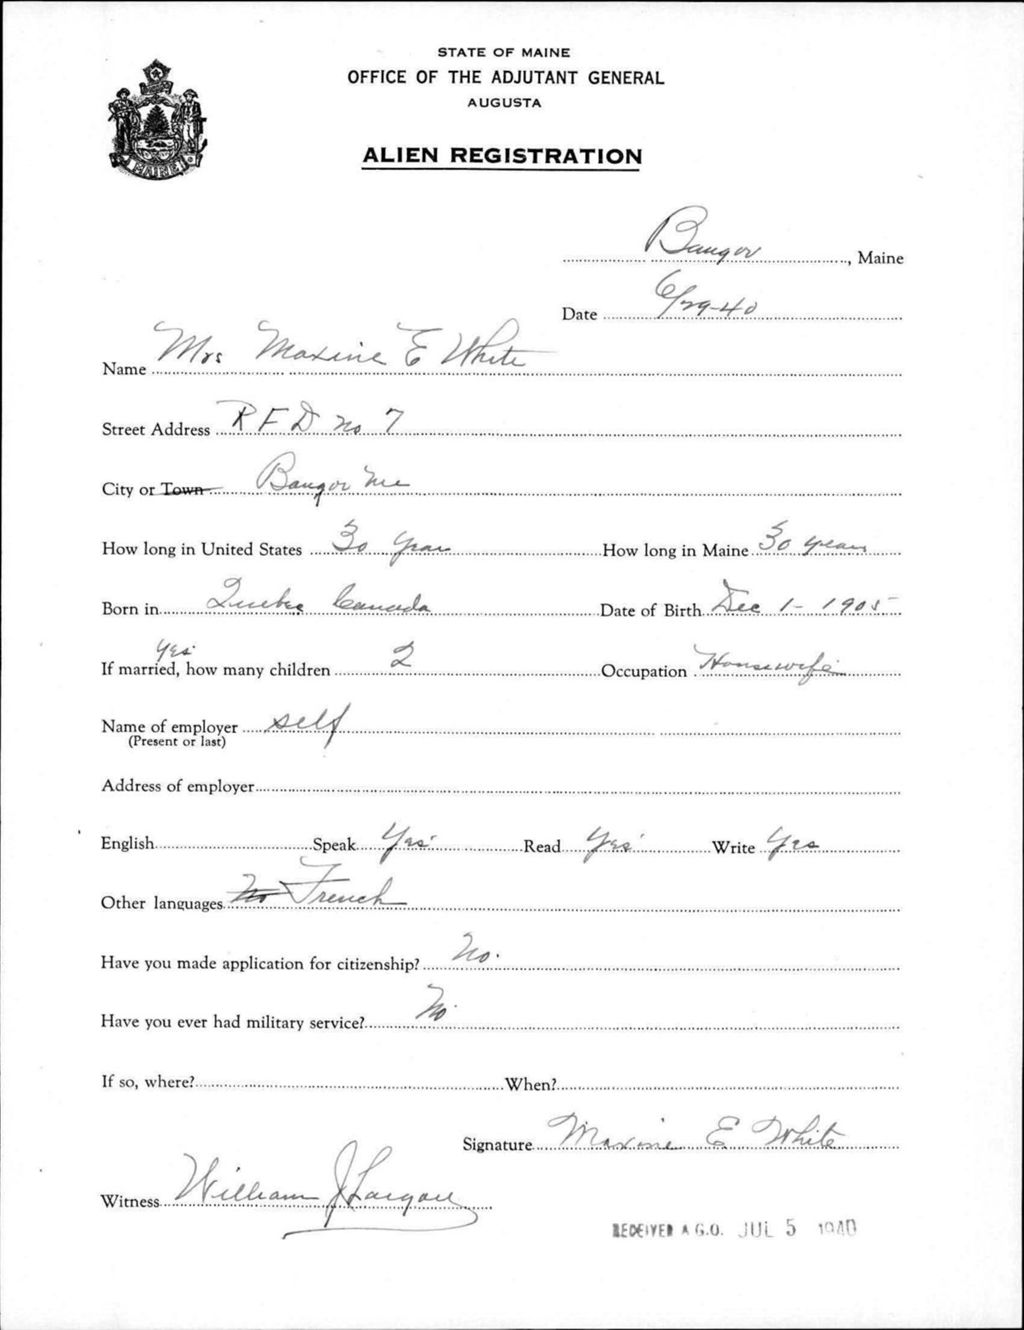 STATE OF MAINE
OFFICE OF THE ADJUTANT GENERAL
AUGUSTA
ALIEN REGISTRATION
MAINE
Bangor, Maine
Date 6/29-40
Name Mrs Maxine E White
Street Address R F D no 7
City or Town Bangor Me
How long in United States 30 years How long in Maine 30 years
Born in Quebec Canada Date of Birth Dec 1 - 1905
yes
If married, how many children 2 Occupation Housewife
Name of employer self
(Present or last)
Address of employer
English Speak Yes Read Yes Write Yes
Other languages No French
Have you made application for citizenship? No.
Have you ever had military service? No
If so, where? When?
Signature Maxine E White
Witness William J
RECEIVED A.G.O. JUL 5 1940